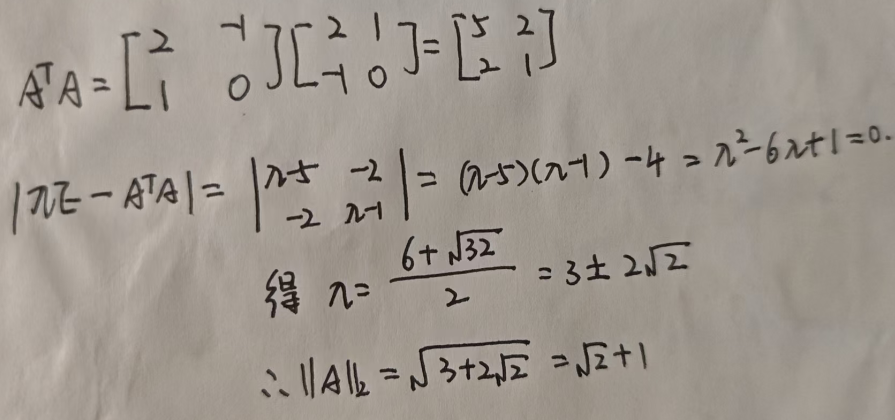 AᵀA = [2 -1; 1 0][2 1; -1 0] = [5 2; 2 1]
|λE - AᵀA| = |λ-5 -2; -2 λ-1| = (λ-5)(λ-1) - 4 = λ² - 6λ + 1 = 0.
得 λ = (6 + √32)/2 = 3 ± 2√2
∴ ||A||₂ = √(3+2√2) = √2 + 1